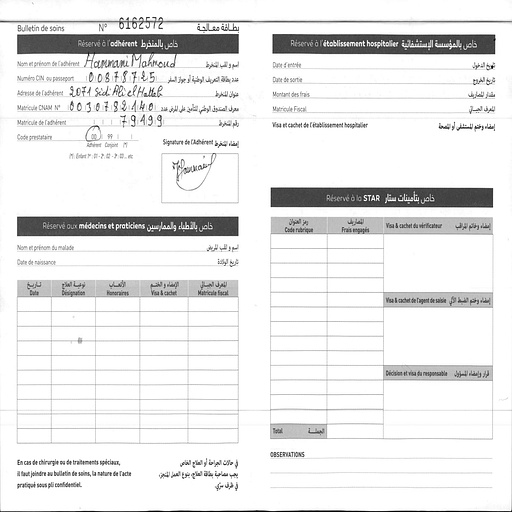 Bulletin de soins N° 6162572 بطاقة معالجة
Réservé à l'adhérent خاص بالمنخرط
Nom et prénom de l'adhérent Hammami Mahmoud اسم و لقب المنخرط
Numéro CIN ou passeport 00878725 عدد بطاقة التعريف الوطنية أو جواز السفر
Adresse de l'adhérent 2071 Sidi Ali el Hattab عنوان المنخرط
Matricule CNAM N° 0030782140 معرف الصندوق الوطني للتأمين على المرض عدد
Matricule de l'adhérent 79199 رقم المنخرط
Code prestataire 00 99 (*)
Adhérent Conjoint (*)
(*) : Enfant 1er : 01 - 2e : 02 - 3e : 03 ... etc
Signature de l'Adhérent إمضاء المنخرط
Hammami
Réservé aux médecins et praticiens خاص بالأطباء والممارسين
Nom et prénom du malade اسم و لقب المريض
Date de naissance تاريخ الولادة
تاريخ نوعية العلاج الأتعاب الإمضاء و الختم المعرف الجبائي
Date Désignation Honoraires Visa & cachet Matricule fiscal
En cas de chirurgie ou de traitements spéciaux,
il faut joindre au bulletin de soins, la nature de l'acte
pratiqué sous pli confidentiel.
في حالات الجراحة أو العلاج الخاص
يجب مصاحبة بطاقة العلاج، بنوع العمل المنجز،
في ظرف سري.
Réservé à l'établissement hospitalier خاص بالمؤسسة الإستشفائية
Date d'entrée تاريخ الدخول
Date de sortie تاريخ الخروج
Montant des frais مقدار المصاريف
Matricule Fiscal المعرف الجبائي
Visa et cachet de l'établissement hospitalier إمضاء وختم المستشفى أو المصحة
Réservé à la STAR خاص بتأمينات ستار
رمز العنوان المصاريف
Code rubrique Frais engagés
Visa & cachet du vérificateur إمضاء وخاتم المراقب
Visa & cachet de l'agent de saisie
Décision et visa du responsable قرار وإمضاء المسؤول
Total الجملة
OBSERVATIONS